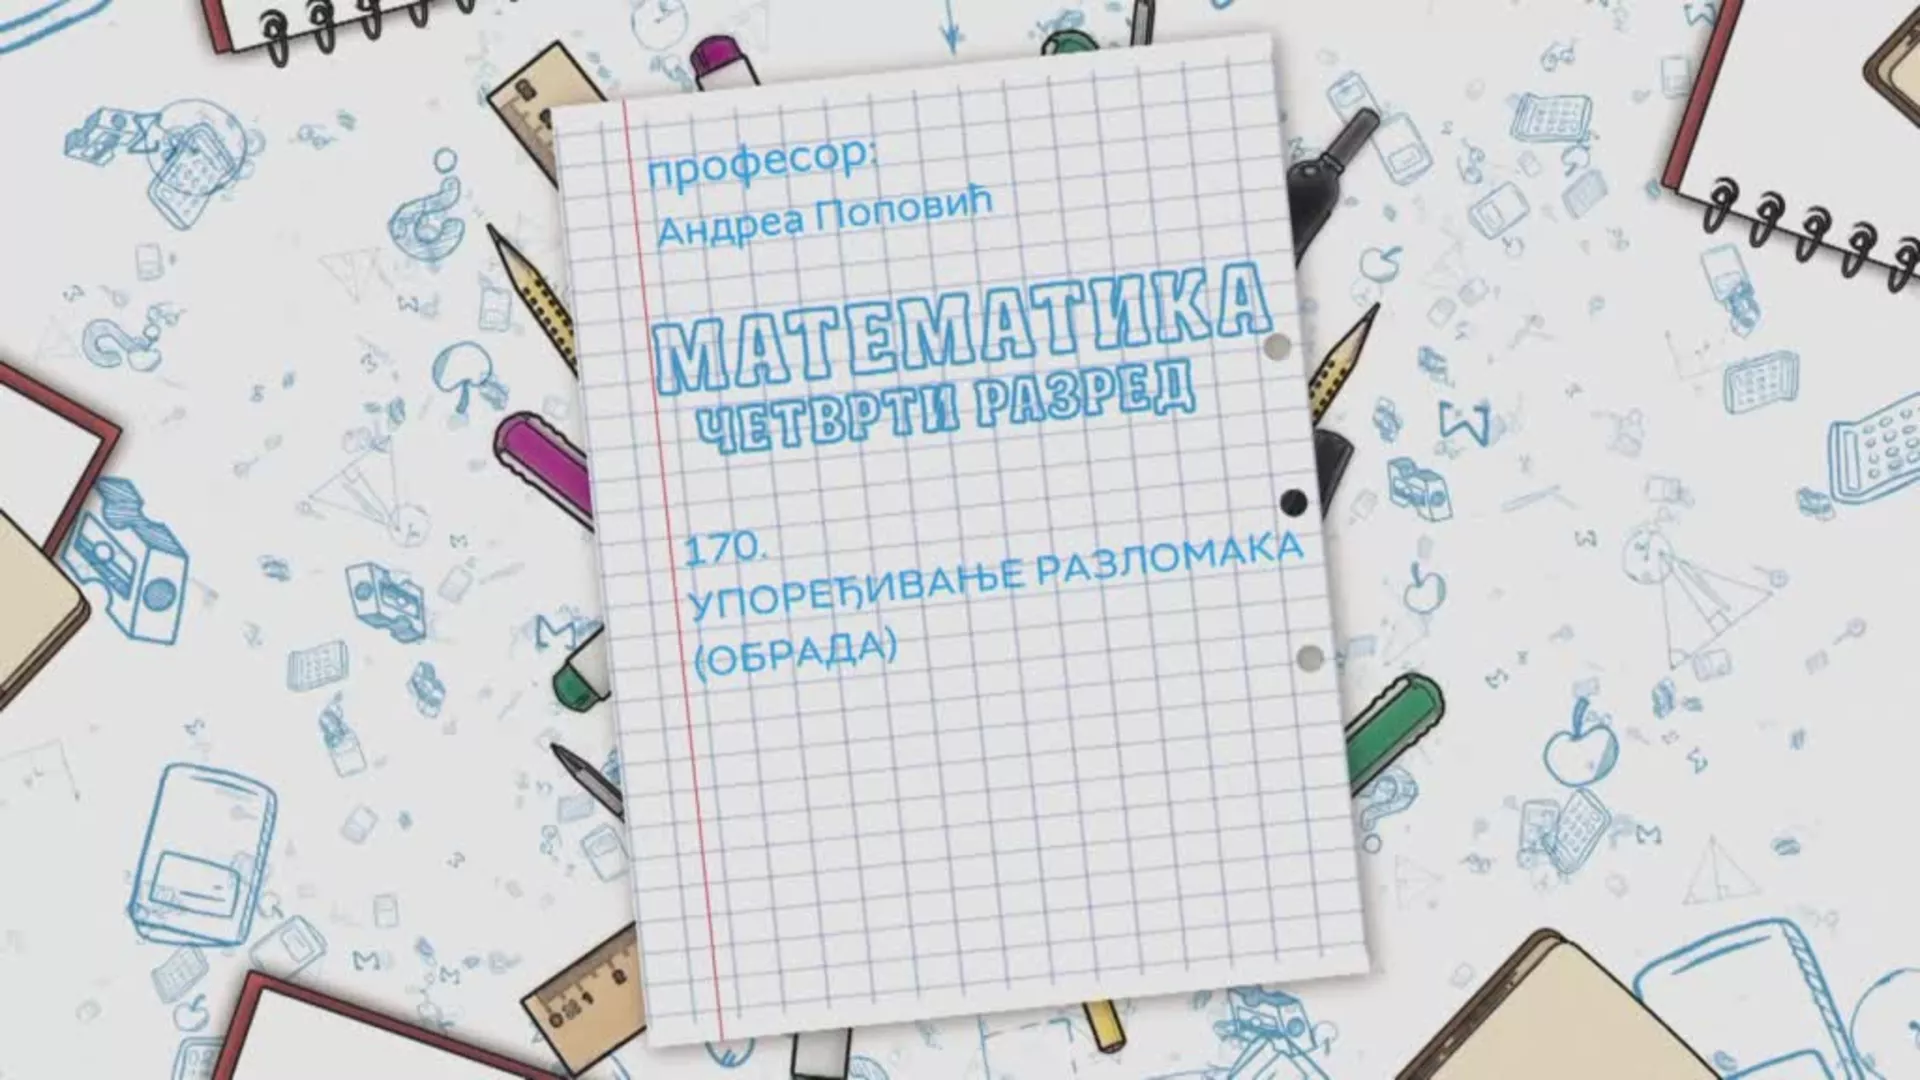 професор:
Андреа Поповић
МАТЕМАТИКА
ЧЕТВРТИ РАЗРЕД
170.
УПОРЕЂИВАЊЕ РАЗЛОМАКА
(ОБРАДА)